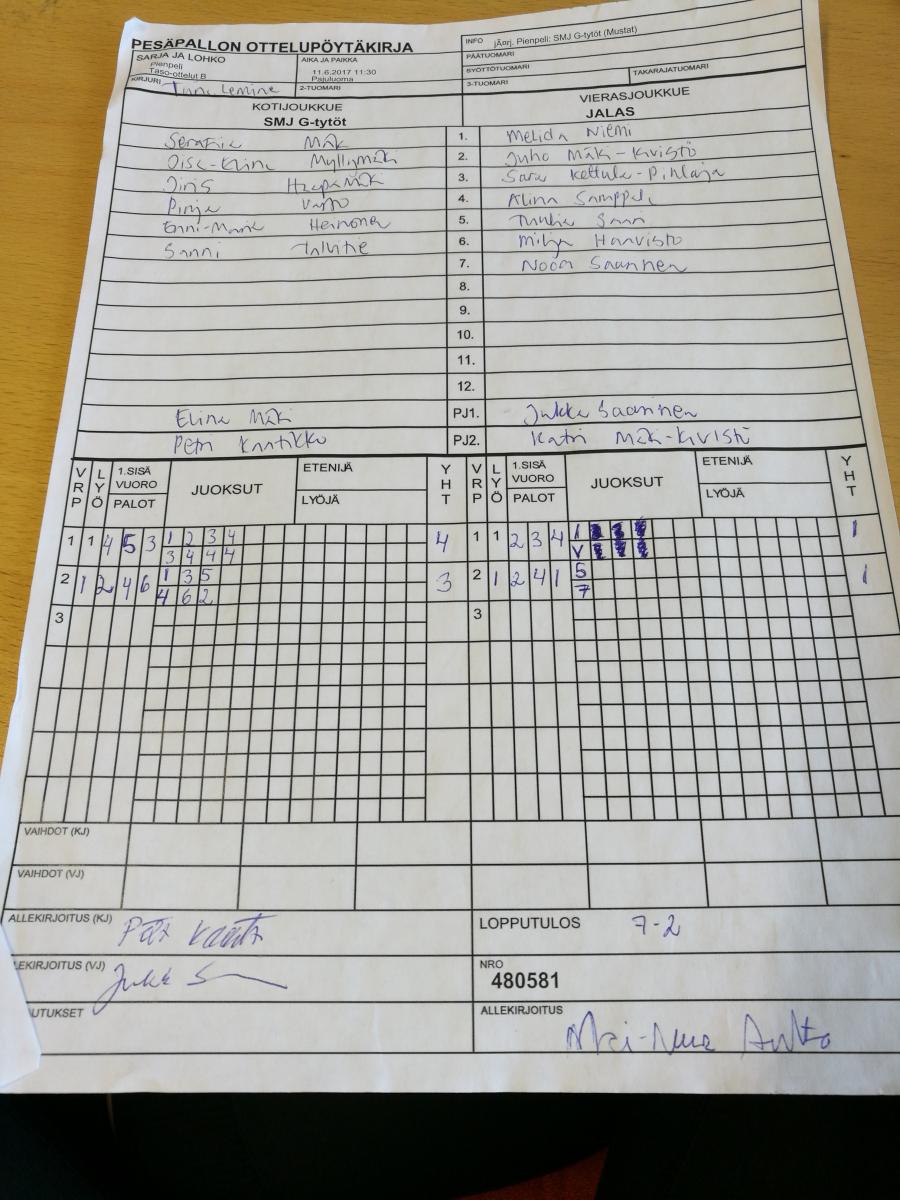 PESÄPALLON OTTELUPÖYTÄKIRJA
INFO jÃ¤rj. Pienpeli: SMJ G-tytöt (Mustat)
SARJA JA LOHKO
Pienpeli
Taso-ottelut B
AIKA JA PAIKKA
11.6.2017 11:30
Pajuluoma
PÄÄTUOMARI
SYÖTTÖTUOMARI
TAKARAJATUOMARI
KIRJURI
2-TUOMARI
3-TUOMARI
KOTIJOUKKUE
SMJ G-tytöt
VIERASJOUKKUE
JALAS
Mäki 1. Melida Niemi
Myllymäki 2. Juho Mäki-Kivistö
Iiris Haapamäki 3. Sara Kettula-Pihlaja
Pinja 4. Alina
Enni-Maria Heinonen 5. Tuulia Saari
Sanni Talvitie 6. Milja Haavisto
7. Noora Saarinen
8.
9.
10.
11.
12.
Elina Mäki PJ1. Jukka Saarinen
Petri PJ2. Katri Mäki-Kivistö
VRP LYÖ 1.SISÄ VUORO PALOT JUOKSUT ETENIJÄ LYÖJÄ YHT VRP LYÖ 1.SISÄ VUORO PALOT JUOKSUT ETENIJÄ LYÖJÄ YHT
1 1 4 5 3 1 2 3 4 4 1 1 2 3 4 1 1
3 4 4 4 V
2 1 2 4 6 1 3 5 3 2 1 2 4 1 5 1
4 6 2 7
3 3
VAIHDOT (KJ)
VAIHDOT (VJ)
ALLEKIRJOITUS (KJ)
LOPPUTULOS 7-2
LEKIRJOITUS (VJ)
NRO
480581
UTUKSET
ALLEKIRJOITUS